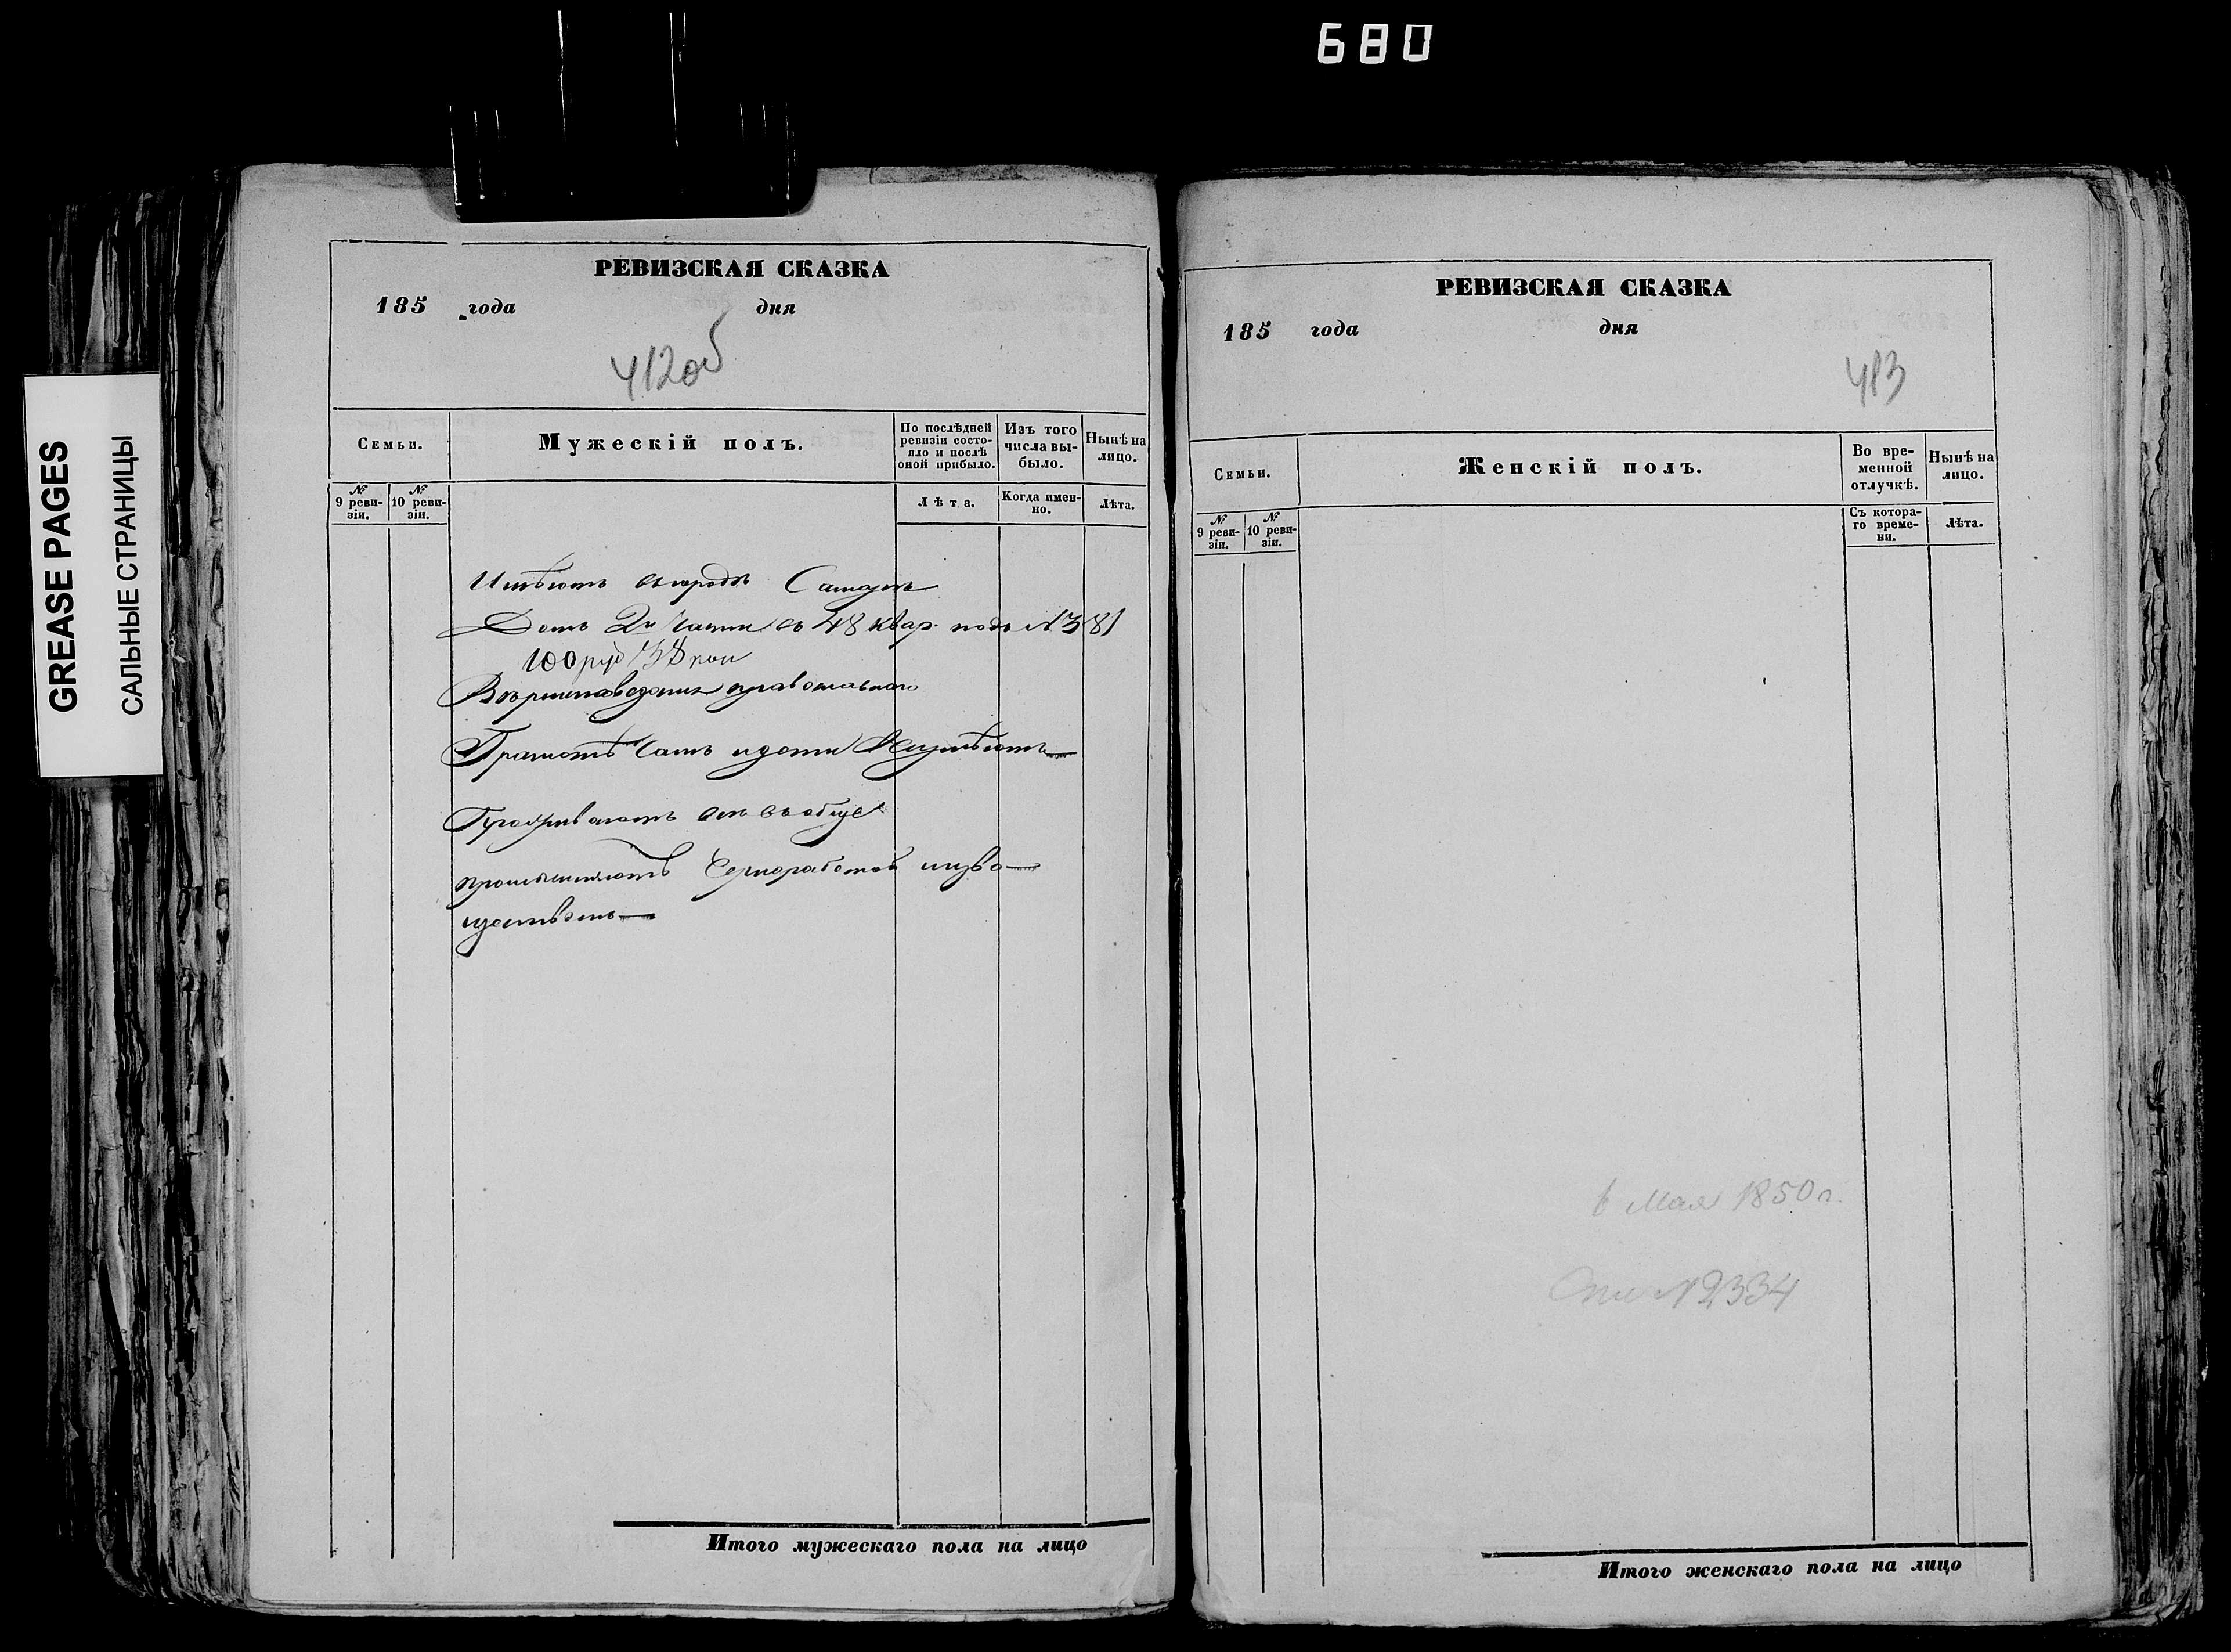 680
GREASE PAGES
САЛЬНЫЕ СТРАНИЦЫ
РЕВИЗСКАЯ СКАЗКА
185 года дня
412об
Семьи.
Мужескій полъ.
По послѣдней ревизіи состояло и послѣ оной прибыло.
Изъ того числа выбыло.
Нынѣ на лицо.
№ 9 ревизіи.
№ 10 ревизіи.
Лѣта.
Когда именно.
Лѣта.
Имѣютъ въ городѣ Самарѣ
Домъ 2й части въ 48 квар. подъ № 381
100 руб коп
Вѣроисповеданія православнаго
Грамотѣ самъ и дети Неумѣютъ
Проживаютъ всѣ вообще
промышляютъ Чернработой и изво-
ществомъ
Итого мужескаго пола на лицо
РЕВИЗСКАЯ СКАЗКА
185 года дня
413
Семьи.
Женскій полъ.
Во временной отлучкѣ.
Нынѣ на лицо.
№ 9 ревизіи.
№ 10 ревизіи.
Съ котораго времени.
Лѣта.
6 Мая 1850 г.
№ 2334
Итого женскаго пола на лицо